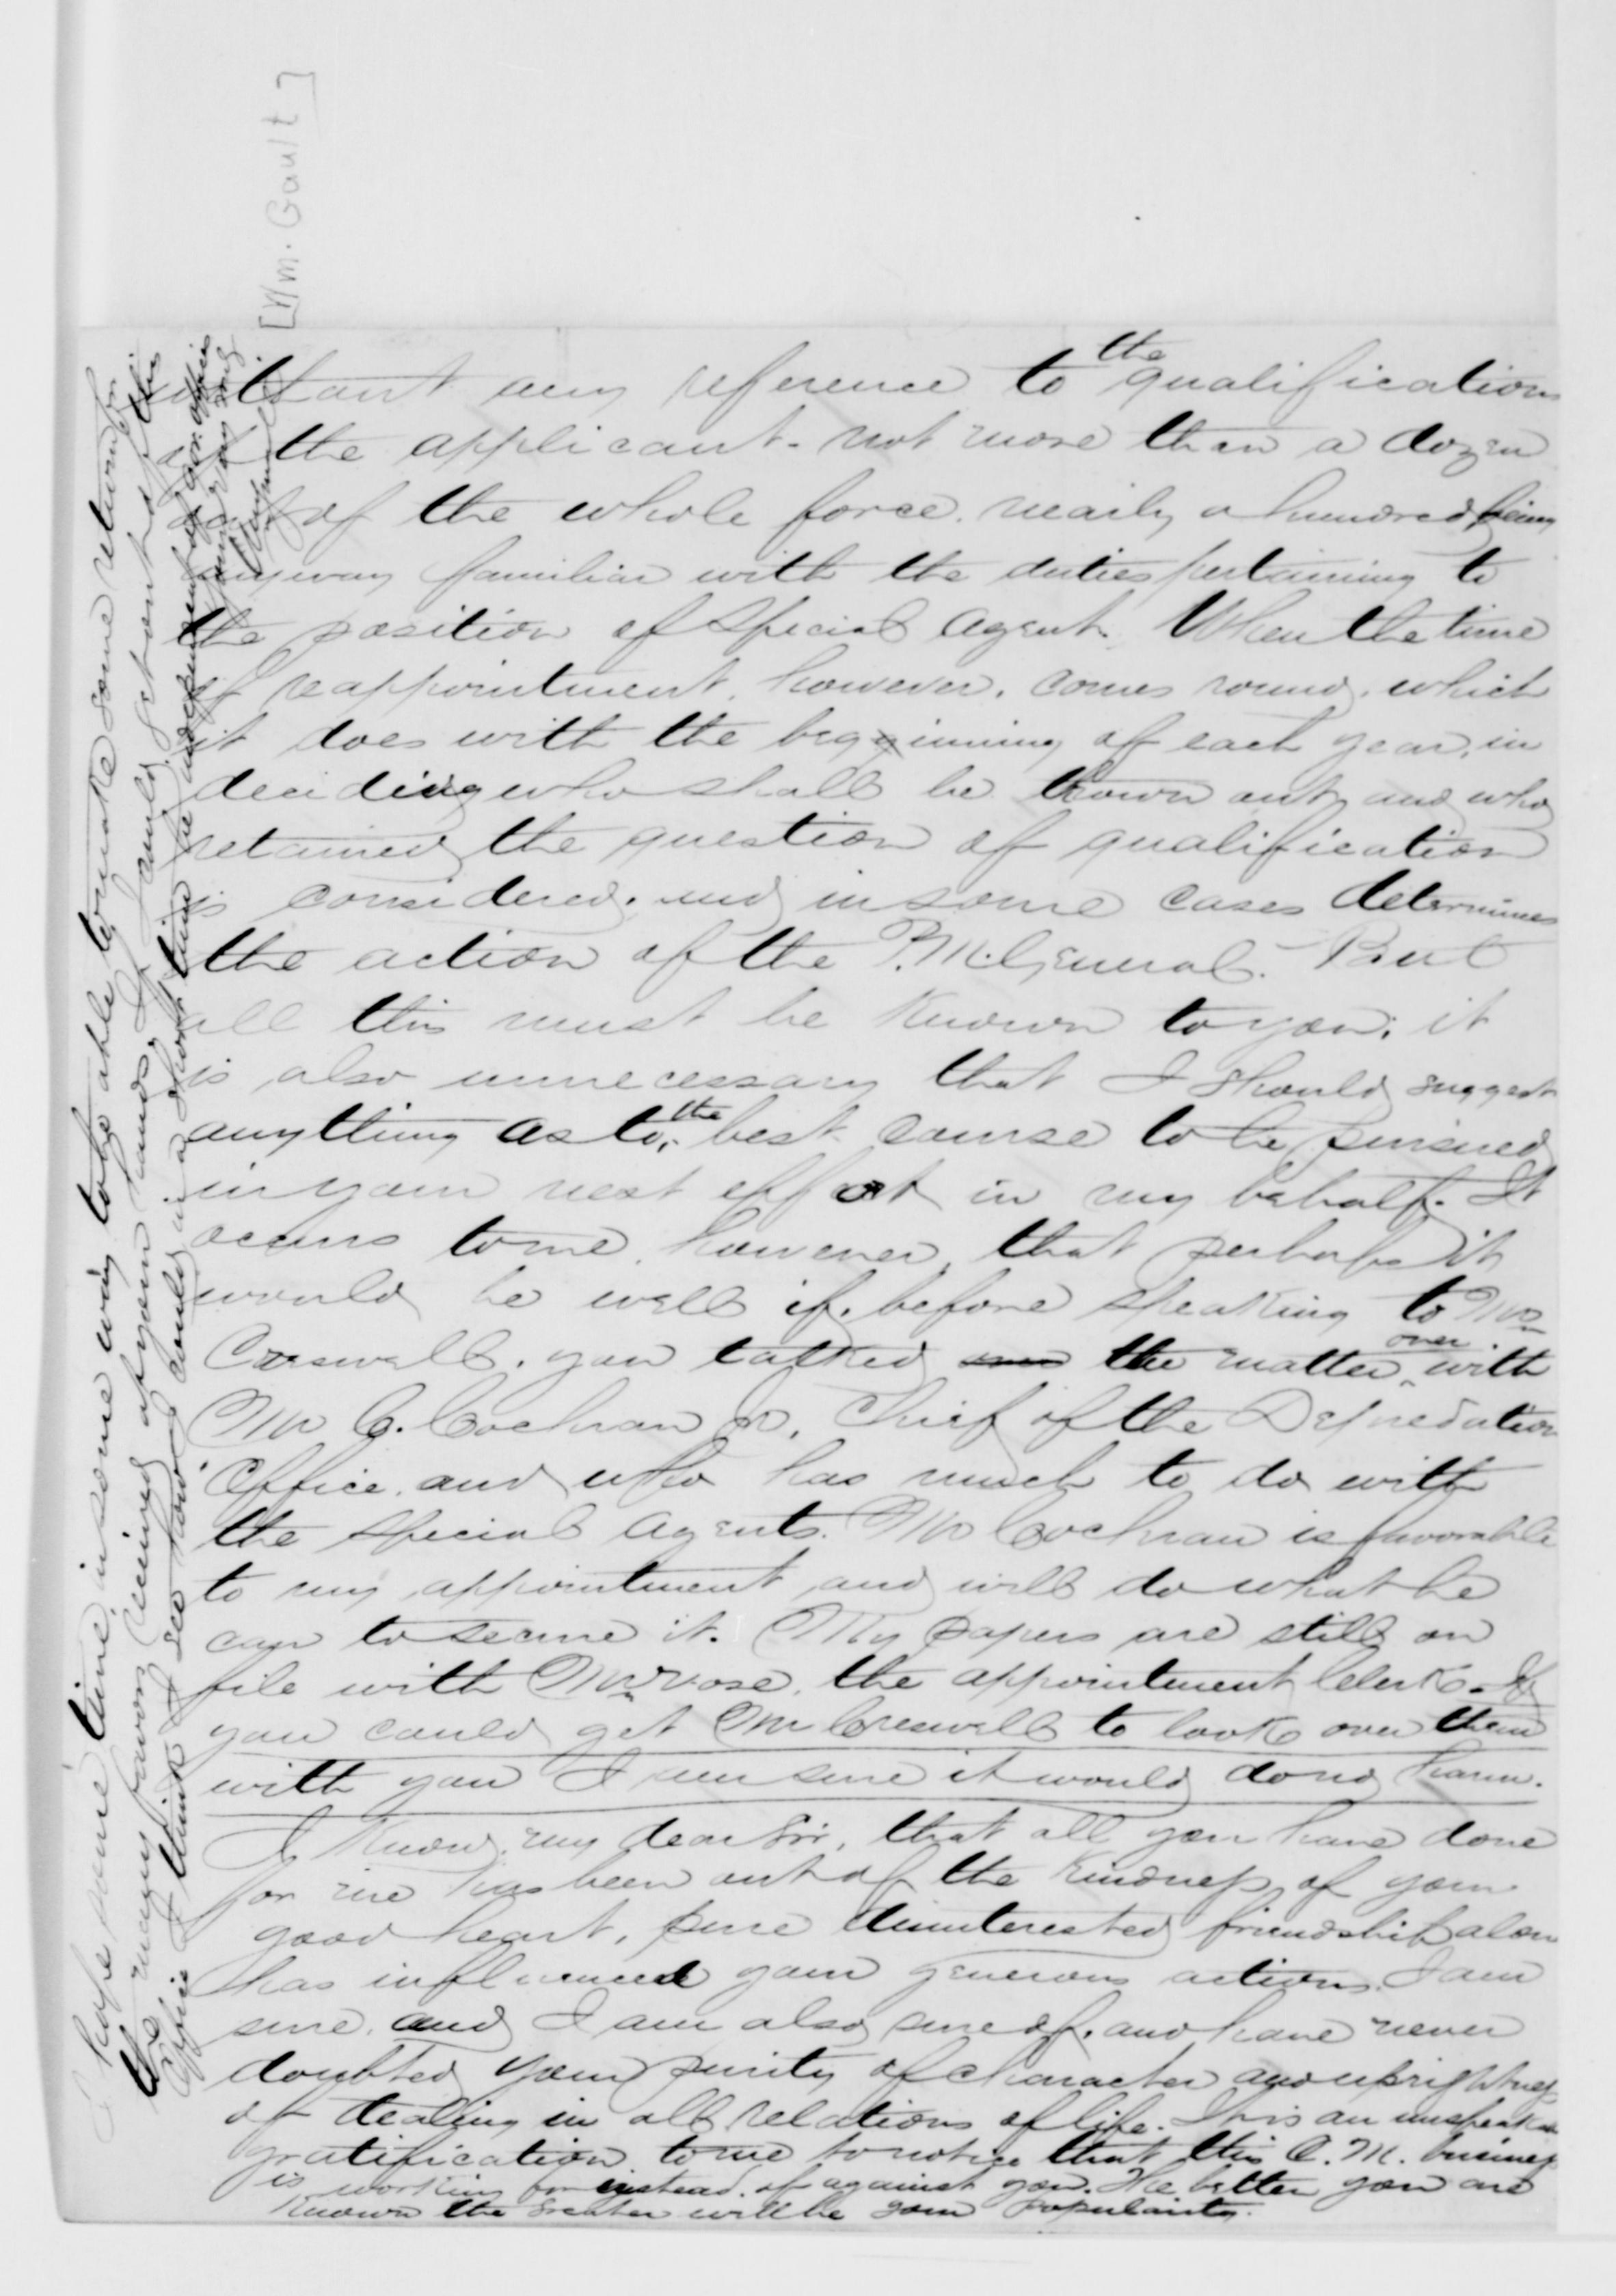 [Wm. Gault]
without any reference to the qualifications
of the applicant. not more than a dozen
out of the whole force. nearly a hundred, being
anyway familiar with the duties pertaining to
the position of Special Agent. When the time
of reappointment, however, comes round, which
it does with the beginning of each year, in
deciding who shall be thrown out, and who
retained, the question of qualification
is considered, and in some cases determines
the action of the P.M. General. But
all this must be known to you; it
is also unnecessary that I should suggest
anything as to the best course to be pursued
in your next effort in my behalf. It
occurs to me, however, that perhaps it
would be well if, before speaking to Mr
Creswell, you talked over the matter over with
Mr C. Cochran Jr, Chief of the Depredation
Office, and who has much to do with
the special agents. Mr Cochran is favorable
to my appointment and will do what he
can to secure it. My papers are still on
file with Mr Vose, the appointment Clerk. If
you could get Mr Creswell to look over them
with you I am sure it would do no harm.
I know, my dear Sir, that all you have done
for me has been out of the kindness of your
good heart, pure disinterested friendship alone
has influenced your generous actions I am
sure, and I am also sure of, and have never
doubted your purity of character and uprightness
of dealing in all relations of life. It is an unspeakable
gratification to me to notice that this C. M. business
is working for instead of against you. The better you are
known the greater will be your popularity.
I hope some time, in some way to be able to make some return for
the many favors received at your hands. If I could get out of this
Office I think I see how I could in a short time be independent of